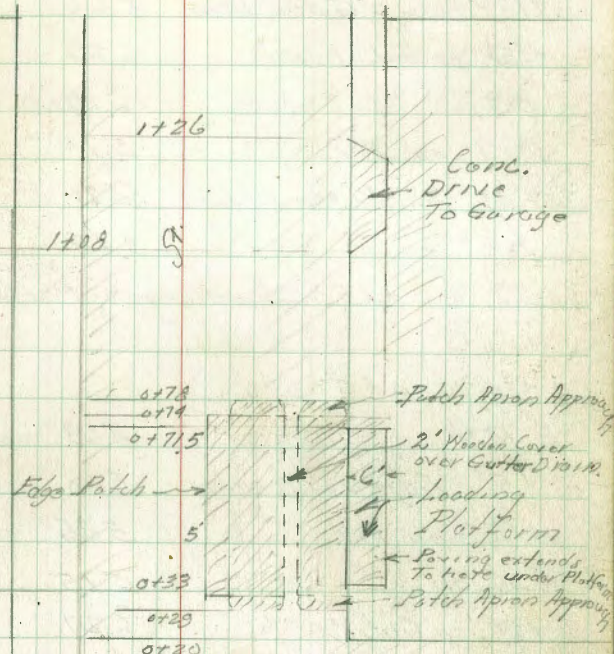 1+26
Conc.
Drive
To Garage
1+08
St.
0+78
0+74
0+71.5
Patch Apron Approach
2' Wooden Cover
over Gutter Drain.
6'
Edge Patch
Loading
Platform
5'
Paving extends
To here under Platform
0+33
Patch Apron Approach
0+29
0+20